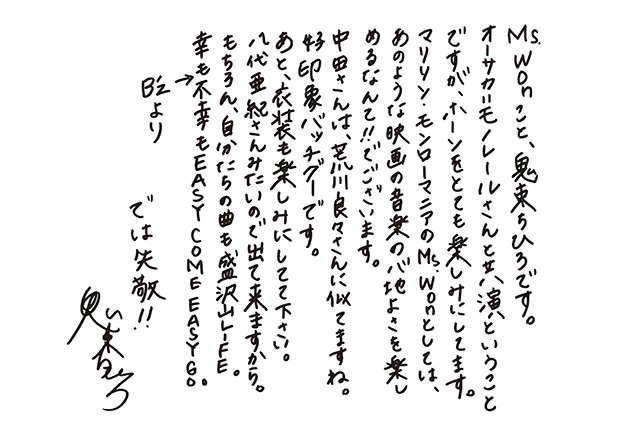 Ms.Wonこと、鬼束ちひろです。
オーサカ=モノレールさんと共演ということ
ですが、ホーンをとても楽しみにしてます。
マリリン・モンローマニアのMs.Wonとしては、
あのような映画の音楽の心地よさを楽し
めるなんて!!でございます。
中田さんは、荒川良々さんに似てますね。
好印象バッチグーです。
あと、衣装も楽しみにしてて下さい。
八代亜紀さんみたいので出て来ますから。
もちろん、自分たちの曲も盛沢山LIFE。
幸も不幸もEASY COME EASY GO。
→
B'zより
では失敬!!
鬼束ちひろ